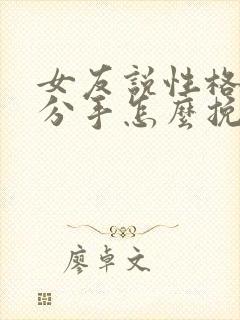 女友說性格
分手怎麼挽
廖卓文